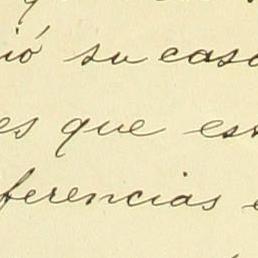 ió su caso
es que est
ferencias e